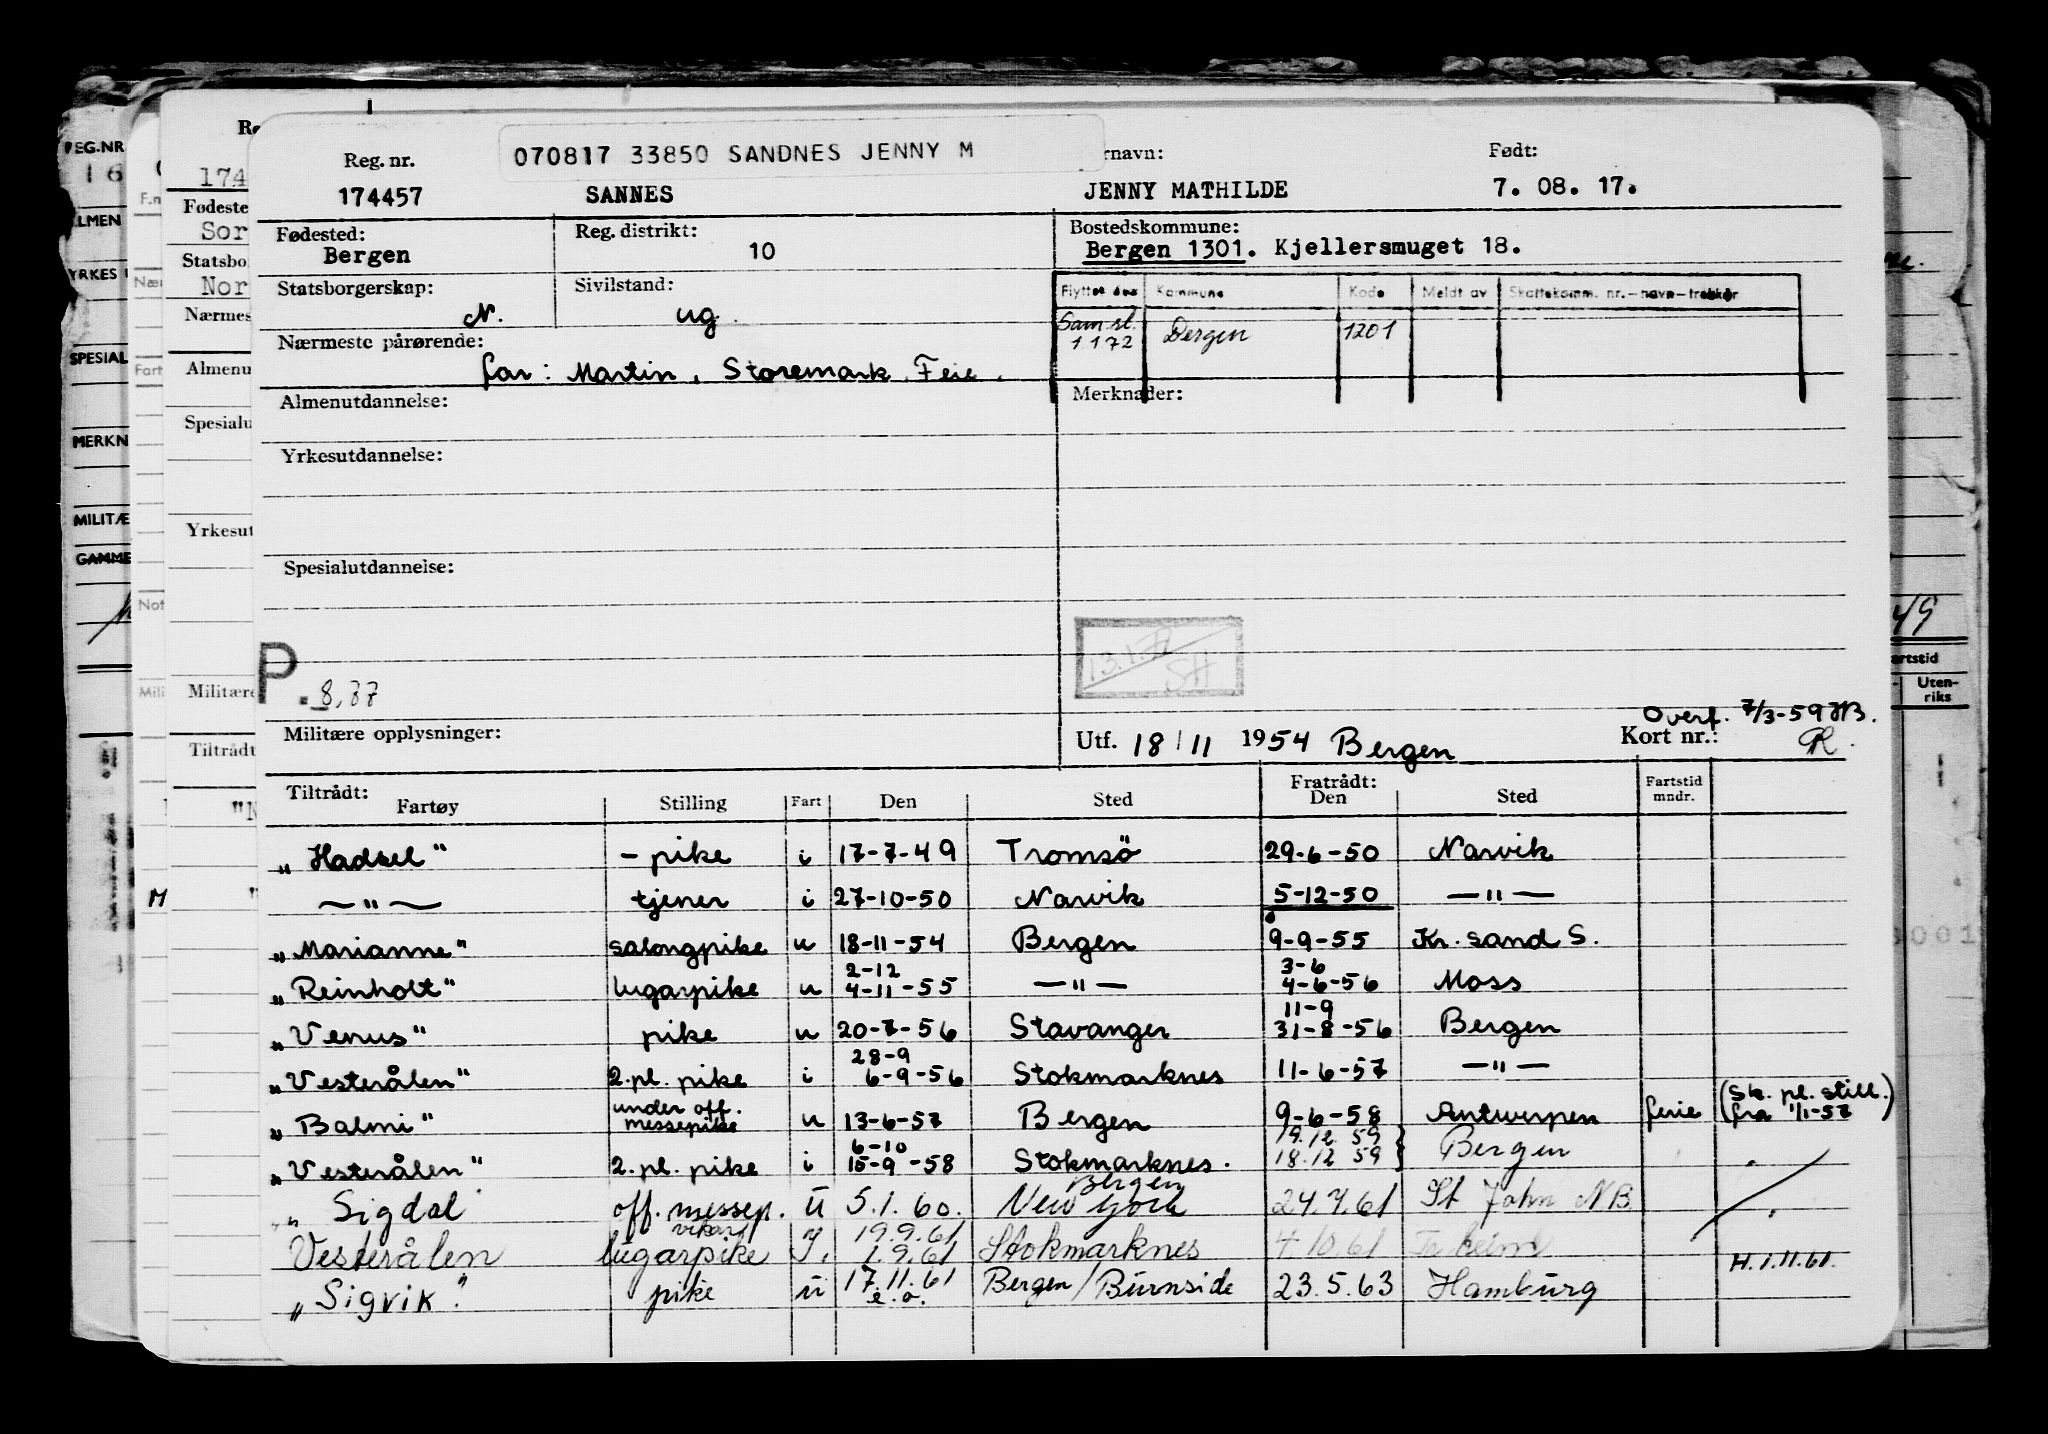 070817 33850 SANDNES JENNY M
Reg. nr. rnavn: Født:
174457 SANNES JENNY MATHILDE 7. 08. 17.
Fødested: Reg. distrikt: Bostedskommune:
Bergen 10 Bergen 1301. Kjellersmuget 18.
Statsborgerskap: Sivilstand: Flyttet den Kommune Kode Meldt av Skattekomm. nr.-navn-trekkår
N. ug. Sam st. 1 1 72 Bergen 1201
Nærmeste pårørende:
far: Martin, Storemark, Feie.
Almenutdannelse: Merknader:
Yrkesutdannelse:
Spesialutdannelse:
13.1.72
SH
P. 8,37
Overf. 7/3-59 HB.
Militære opplysninger: Utf. 18/11 1954 Bergen Kort nr.: R.
Tiltrådt: Fratrådt:
Fartøy Stilling Fart Den Sted Den Sted Fartstid mndr.
"Hadsel" - pike i 17-7-49 Tromsö 29-6-50 Narvik
—"— tjener i 27-10-50 Narvik 5-12-50 —"—
"Marianne" salongpike u 18-11-54 Bergen 9-9-55 Kr. sand S.
2-12 3-6
"Reinholt" lugarpike u 4-11-55 —"— 4-6-56 Moss
11-9
"Venus" pike u 20-7-56 Stavanger 31-8-56 Bergen
28-9
"Vesterålen" 2. pl. pike i 6-9-56 Stokmarknes 11-6-57 —"—
"Balmi" under off. messepike u 13-6-57 Bergen 9-6-58 Antwerpen ferie (Sk. pl. still. fra 1/1-57)
6-10 19.12 59
"Vesterålen" 2. pl. pike i 15-9-58 Stokmarknes. 18.12 59 } Bergen
Bergen
"Sigdal off. messep. ü 5.1.60. New York 24.7.61 St John NB
vikar 19.9.61
Vesterålen lugarpike I. 1.9.61 Stokmarknes 4.10.61 H.1.11.61.
"Sigvik". pike ü 17.11.61 Bergen/Burnside 23.5.63 Hamburg
e.o.